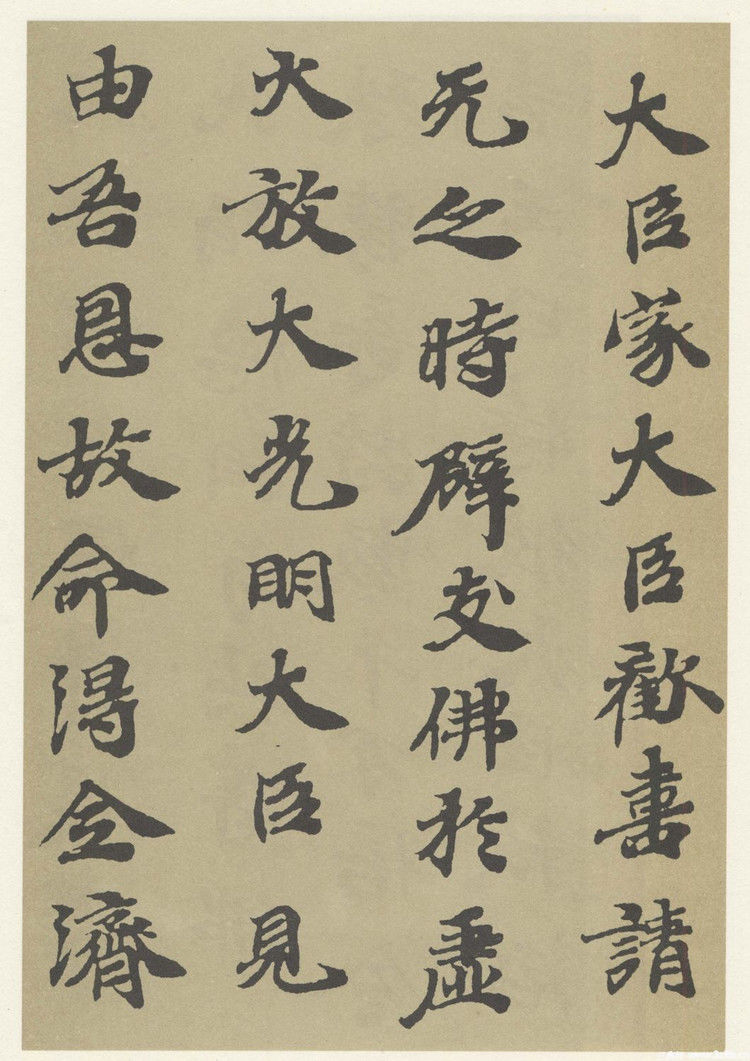 大臣家大臣歡喜請
无之時辟支佛於虛
火放大光明大臣見
由吾恩故命得全濟